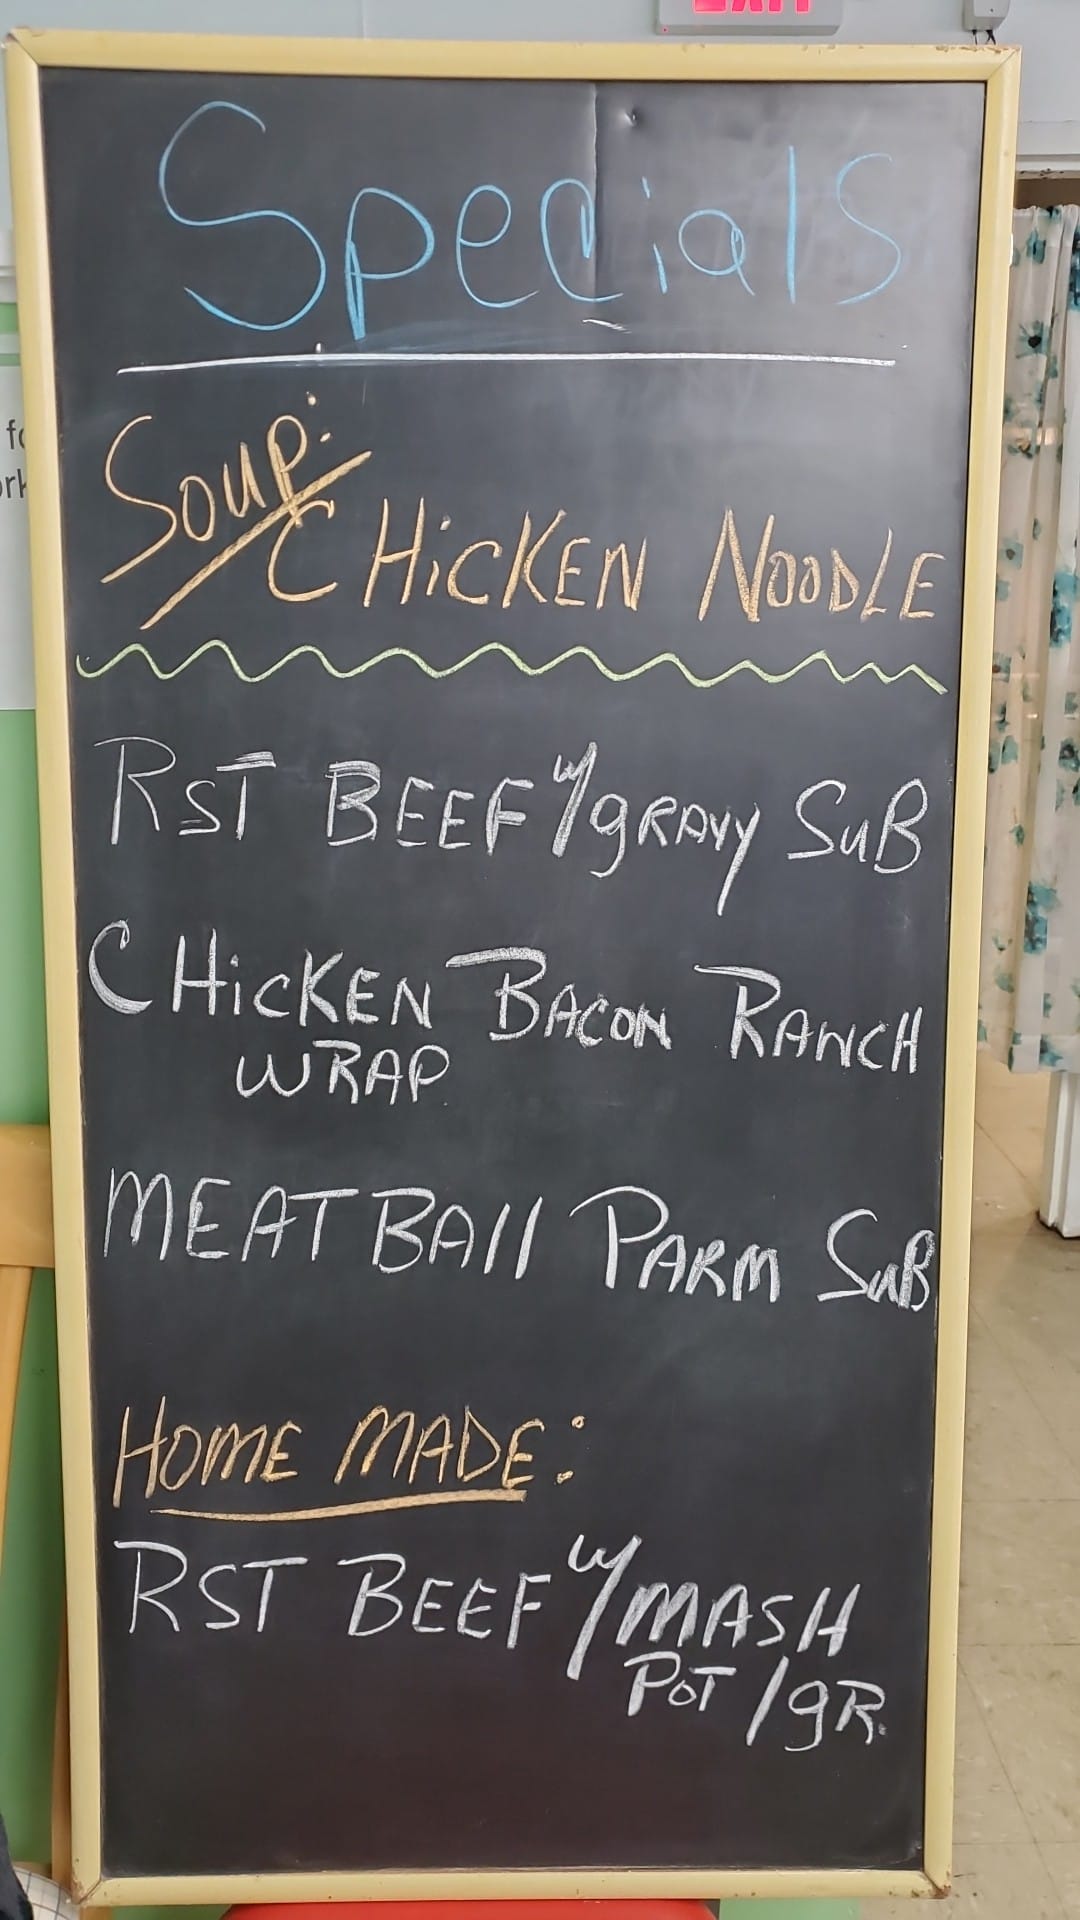 EXIT
Specials
Soup:
CHiCKEN NOODLE
RST BEEF w/gRAVY SuB
CHiCKEN BACON RANCH
WRAP
MEATBAll PARM SuB
HOME MADE:
RST BEEF w/MASH
POT/gR.